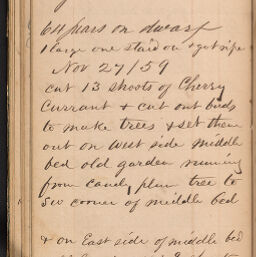 pears on dwarf
1 large one staid on & got ripe
Nov 27/59
cut 13 shoots of Cherry
Currant & cut out buds
to make trees & set them
out on west side middle
bed old garden running
from candy plum tree to
SW corner of middle bed
& on East side of middle bed